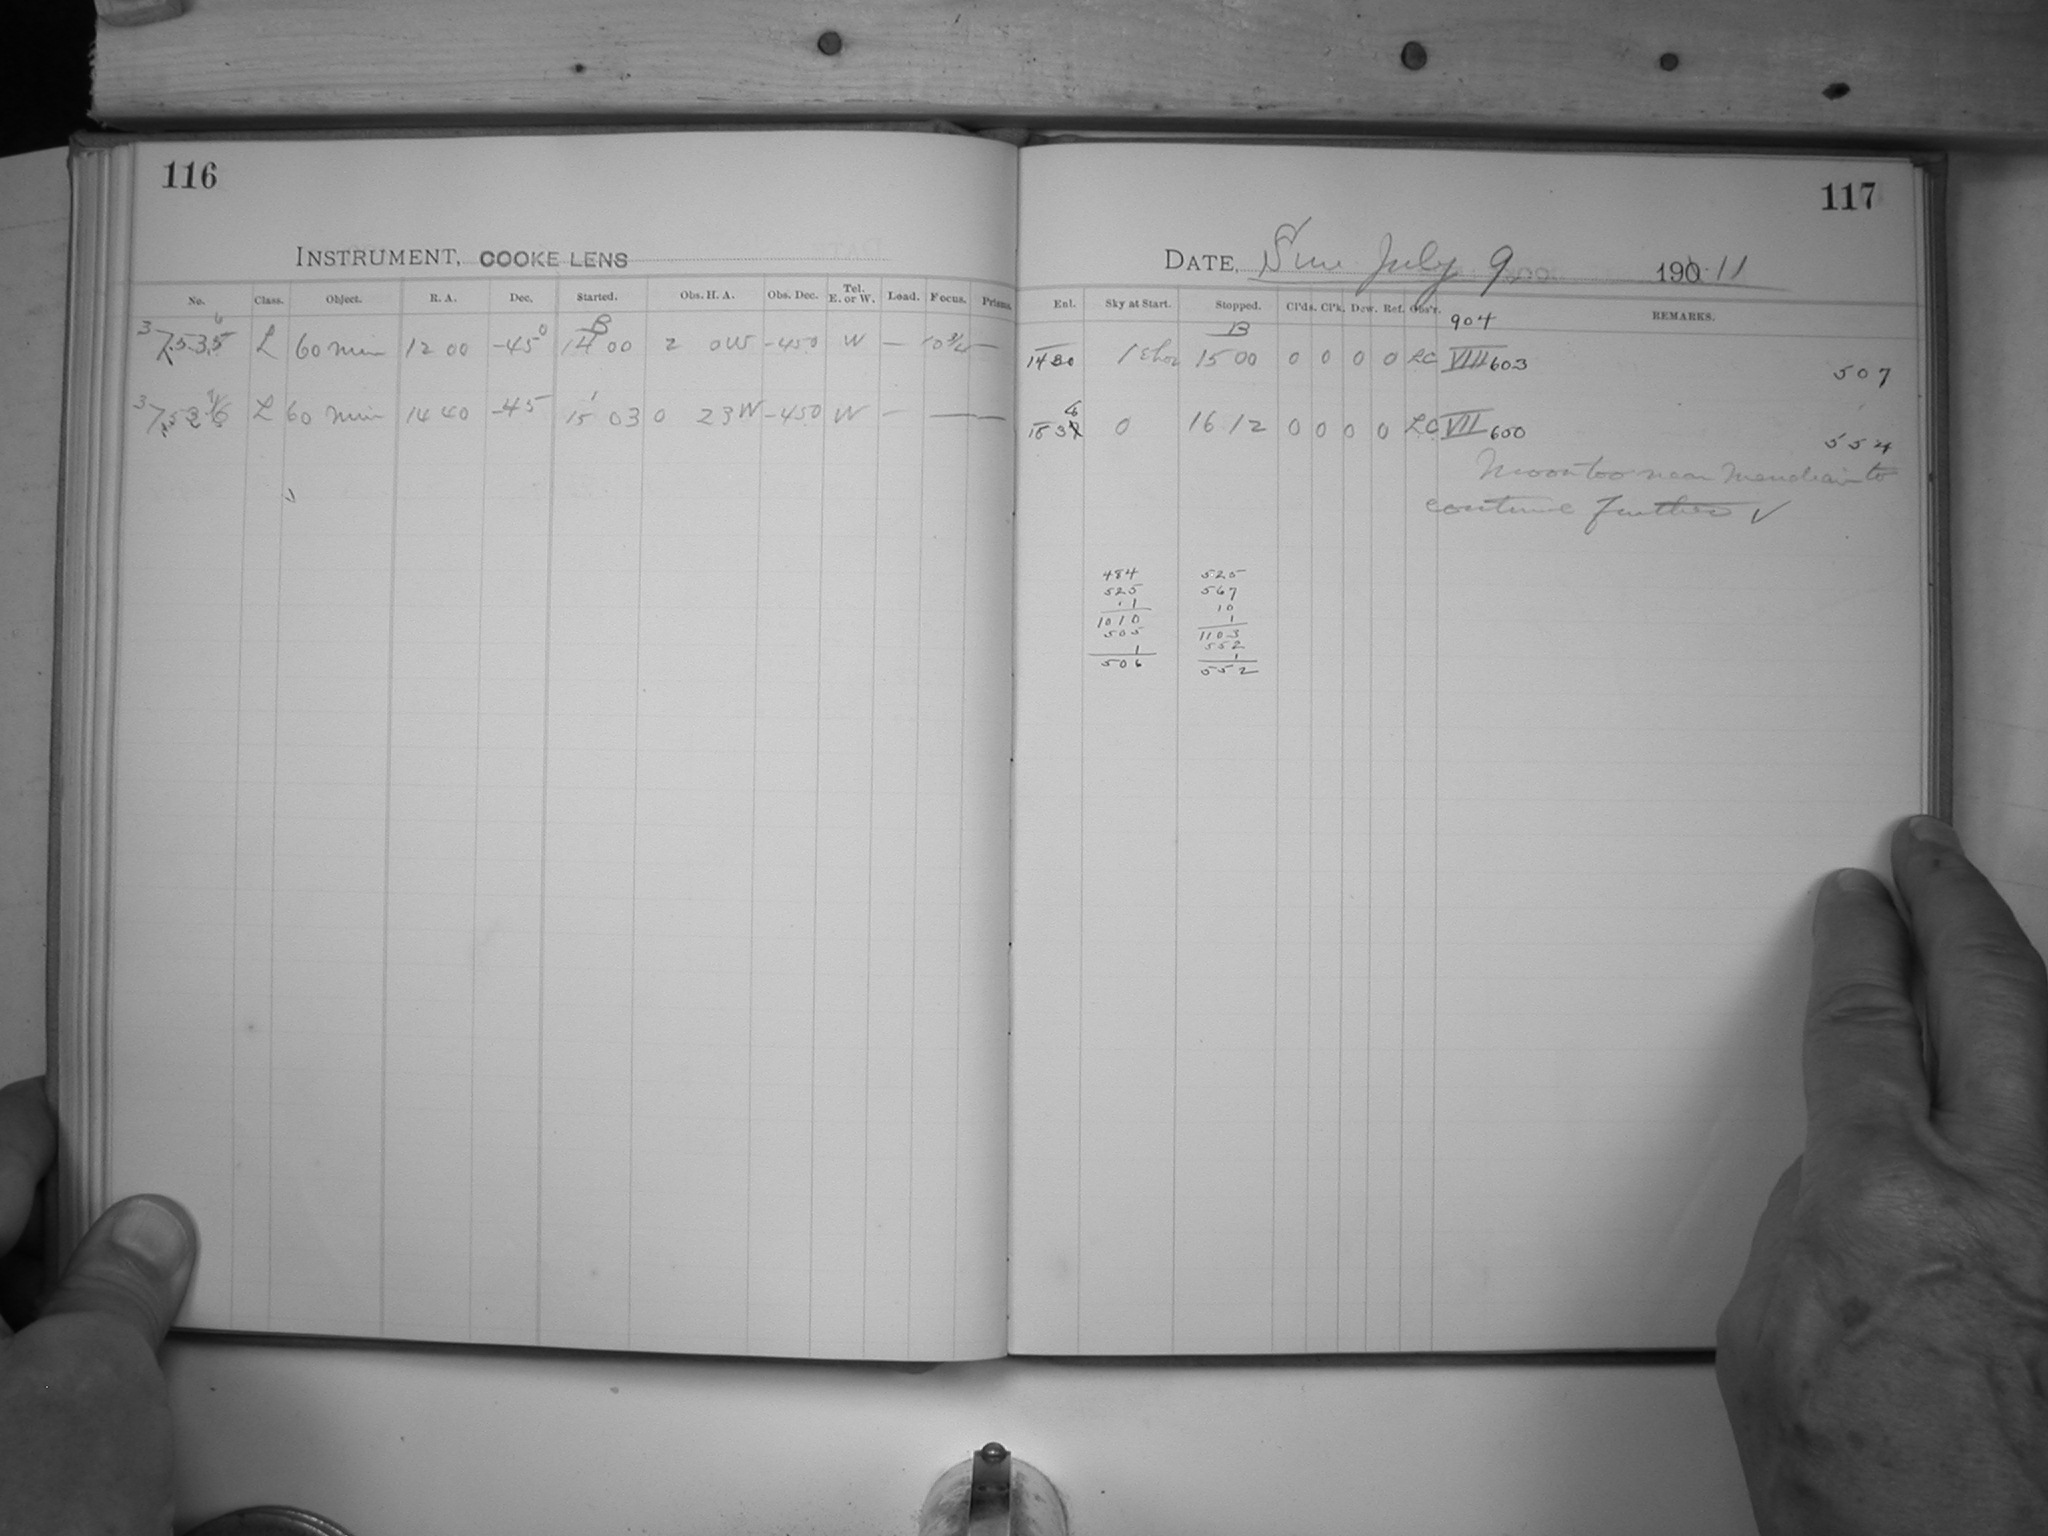 116
INSTRUMENT, COOKE LENS
No. Class. Object. R. A. Dec. Started. Obs. H. A. Obs. Dec. Tel. E. or W. Load. Focus. Prisms.
L 60 min 12 00 -45 0 14 00 2 0W -450 W —
L 60 min 14 40 -45 15 03 0 23W -450 W — — —
117
DATE, Sun July 9 190 11
Enl. Sky at Start. Stopped. Cl'ds. Cl'k. Dew. Ref. Obs'r. REMARKS.
904
B
1430 15 00 0 0 0 0 LC VIII 603 507
0 16 12 0 0 0 0 LC VII 650 554
Moon too near Meridian to
continue further √
484 525
525 567
11 10
1010 1
505 1103
1 552
506 1
552